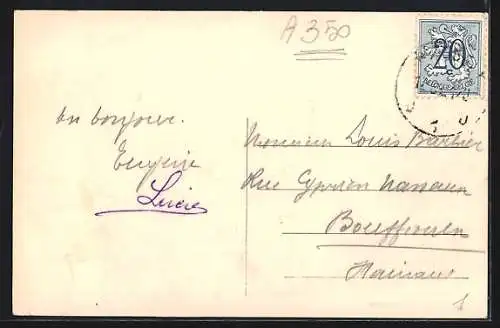 A 350
20
un bonjour.
Eugénie
Lucie
Monsieur Louis Barbier
Rue Cyprien
Bouffioulx
Hainaut
1